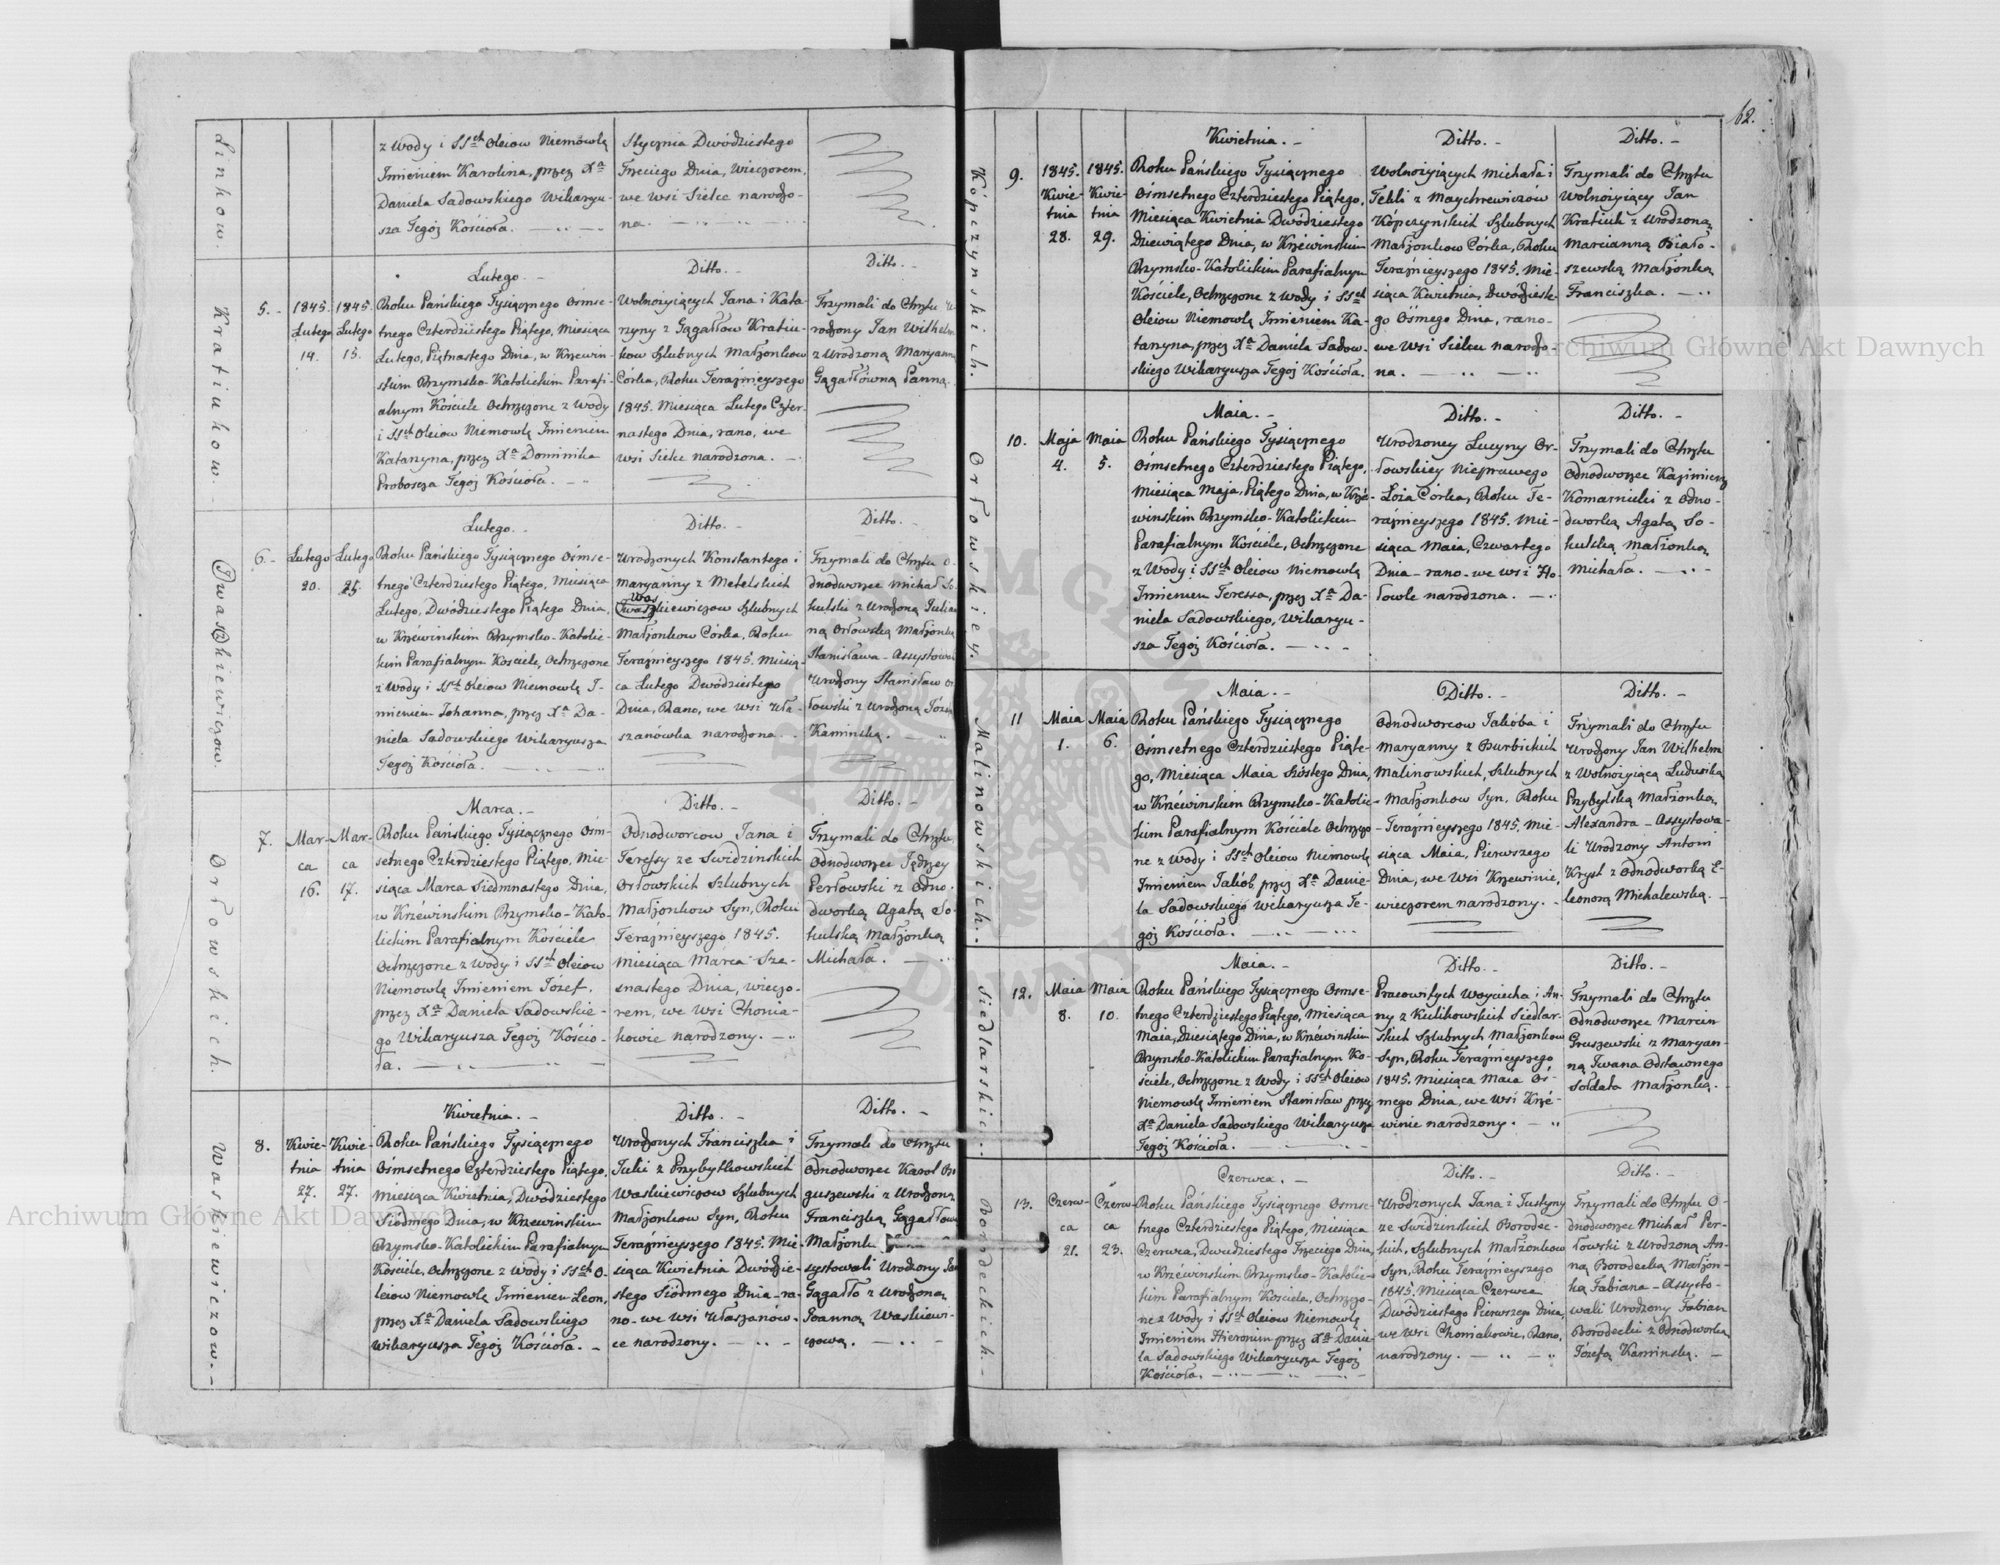 62.
Linkow.
z Wody i SSch Oleiow Niemowlę
Imieniem Karolina, przez Xa
Daniela Sadowskiego Wikaryu-
sza Tegoż Kościoła.
Stycznia Dwódziestego
Trzeciego Dnia, Wieczorem,
we Wsi Sielce narodzo-
na.
Kratiukow.
5.
1845.
Lutego
14.
1845.
Lutego
15.
Lutego.
Roku Pańskiego Tysiącznego Ośmse-
tnego Czterdziestego Piątego, Miesiąca
Lutego, Piętnastego Dnia, w Krzewin-
skim Rzymsko-Katolickim Parafi-
alnym Kościele Ochrzczone z Wody
i SSch Oleiow Niemowlę Imieniem
Katarzyna, przez Xa Dominika
Proboszcza Tegoż Kościoła.
Ditto.
Wolnożyiących Jana i Kata-
rzyny z Gągałłow Kratiu-
kow Szlubnych Małżonkow
Córka, Roku Teraźnieyszego
1845. Miesiąca Lutego Czter-
nastego Dnia, rano, we
Wsi Sielce narodzona.
Ditto.
Trzymali do Chrztu U-
rodzony Jan Wilhelm
z Urodzoną Maryanną
Gągałłówną Panną.
Iwaszkiewiczow.
6.
Lutego
20.
Lutego
25.
Lutego.
Roku Pańskiego Tysiącznego Ośmse-
tnego Czterdziestego Piątego, Miesiąca
Lutego, Dwódziestego Piątego Dnia,
w Krzéwinskim Rzymsko-Katolic-
kim Parafialnym Kosciele, Ochrzczone
z Wody i SSch Oleiow Niemowlę I-
mieniem Johanna, przez Xa Da-
niela Sadowskiego Wikaryusza
Tegoż Kościoła.
Ditto.
Urodzonych Konstantego i
Maryanny z Metelskich
Was
Iwaszkiewiczow Szlubnych
Małżonkow Córka, Roku
Teraźnieyszego 1845. Miesią-
ca Lutego Dwódziestego
Dnia, Rano, we Wsi Uła-
szanówka narodzona.
Ditto.
Trzymali do Chrztu O-
dnodworzec Michał So-
kulski z Urodzoną Julian-
ną Orłowską Małżonką
Stanisława - Assystował
Urodzony Stanisław Or-
łowski z Urodzoną Józefą
Kaminską.
Orłowskich.
7.
Mar-
ca
16.
Mar-
ca
17.
Marca.
Roku Pańskiego Tysiącznego Ośm-
setnego Czterdziestego Piątego, Mie-
siąca Marca Siedmnastego Dnia,
w Krzéwinskim Rzymsko-Kato-
lickim Parafialnym Kościele
Ochrzczone z Wody i SSch Oleiow
Niemowlę Imieniem Józef,
przez Xa Daniela Sadowskie-
go Wikaryusza Tegoż Kościo-
ła.
Ditto.
Odnodworcow Jana i
Teressy ze Swidzinskich
Orłowskich Szlubnych
Małżonkow Syn, Roku
Teraźnieyszego 1845.
Miesiąca Marca Sze-
snastego Dnia, wieczo-
rem, we Wsi Chonia-
kowie narodzony.
Ditto.
Trzymali do Chrztu,
Odnodworzec Jędrzey
Perłowski z Odno-
dworką Agatą So-
kulską Małżonką
Michała.
Waskiewiczow.
8.
Kwie-
tnia
27.
Kwie-
tnia
27.
Kwietnia.
Roku Pańskiego Tysiącznego
Ośmsetnego Czterdziestego Piątego,
Miesiąca Kwietnia, Dwódziestego
Siódmego Dnia, w Krzewinskim
Rzymsko-Katolickim Parafialnym
Kościele, Ochrzczone z Wody i SSch O-
leiow Niemowlę Imieniem Leon,
przez Xa Daniela Sadowskiego
Wikaryusza Tegoż Kościoła.
Ditto.
Urodzonych Franciszka i
Julii z Przybytkowskich
Waskiewiczow Szlubnych
Małżonkow Syn, Roku
Teraźnieyszego 1845. Mie-
siąca Kwietnia Dwódzie-
stego Siódmego Dnia - ra-
no - we Wsi Ułaszanów-
ce narodzony.
Ditto.
Trzymali do Chrztu
Odnodworzec Karol Bo-
guszewski z Urodzoną
Franciszką Gągałłow
Małżonk
systowali Urodzony Jan
Gągałło z Urodzoną
Joanną Waskiewi-
czową.
Kópczynskich.
9.
1845.
Kwie-
tnia
28.
1845.
Kwie-
tnia
29.
Kwietnia.
Roku Pańskiego Tysiącznego
Ośmsetnego Czterdziestego Piątego,
Miesiąca Kwietnia Dwódziestego
Dziewiątego Dnia, w Krzéwinskim
Rzymsko-Katolickim Parafialnym
Kościele, Ochrzczone z Wody i SSch
Oleiow Niemowlę Imieniem Ka-
tarzyna, przez Xa Daniela Sadow-
skiego Wikaryusza Tegoż Kościoła.
Ditto.
Wolnożyiących Michała i
Tekli z Maychrewiczów
Kópczynskich Szlubnych
Małżonkow Córka, Roku
Teraźnieyszego 1845. Mie-
siąca Kwietnia, Dwódzieste-
go Ósmego Dnia, rano-
we Wsi Sielcu narodzo-
na.
Ditto.
Trzymali do Chrztu
Wolnożyiący Jan
Kratiuk z Urodzoną
Marcianną Biało-
szewską Małżonką
Franciszka.
Orłowskiey.
10.
Maja
4.
Maia
5.
Maia.
Roku Pańskiego Tysiącznego
Ośmsetnego Czterdziestego Piątego,
Miesiąca Maja, Piątego Dnia, w Krzé-
winskim Rzymsko-Katolickim
Parafialnym Kościele, Ochrzczone
z Wody i SSch Oleiow Niemowlę
Imieniem Teressa, przez Xa Da-
niela Sadowskiego, Wikaryu-
sza Tegoż Kościoła.
Ditto.
Urodzoney Lucyny Or-
łowskiey Nieprawego
Łoża Córka, Roku Te-
raźnieyszego 1845. Mie-
siąca Maia, Czwartego
Dnia - rano - we Wsi Ho-
łowle narodzona.
Ditto.
Trzymali do Chrztu
Odnodworzec Kazimierz
Komarnicki z Odno-
dworką Agatą So-
kulską Małżonką
Michała.
Malinowskich.
11
Maia
1.
Maia
6.
Maia.
Roku Pańskiego Tysiącznego
Ośmsetnego Czterdziestego Piąte-
go, Miesiąca Maia Szóstego Dnia,
w Krzéwinskim Rzymsko-Katolic-
kim Parafialnym Kościele Ochrzczo-
ne z Wody i SSch Oleiow Niemowlę
Imieniem Jakób, przez Xa Danie-
la Sadowskiego Wikaryusza Te-
goż Kościoła.
Ditto.
Odnodworcow Jakóba i
Maryanny z Burbickich
Malinowskich, Szlubnych
Małżonkow Syn, Roku
Teraźnieyszego 1845. Mie-
siąca Maia, Pierwszego
Dnia, we Wsi Krzewinie,
wieczorem narodzony.
Ditto.
Trzymali do Chrztu
Urodzony Jan Wilhelm
z Wolnożyiącą Ludwiką
Przybylską Małżonką,
Alexandra - Assystowa-
li Urodzony Antoni
Kryst z Odnodworką E-
leonorą Michalewską.
Siedlarskich.
12.
Maia
8.
Maia
10.
Maia.
Roku Pańskiego Tysiącznego Osmse-
tnego Czterdziestego Piątego, Miesiąca
Maia, Dziesiątego Dnia, w Krzéwinskim
Rzymsko-Katolickim Parafialnym Ko-
ściele, Ochrzczone z Wody i SSch Oleiow
Niemowlę Imieniem Stanisław przez
Xa Daniela Sadowskiego Wikaryusza
Tegoż Kościoła.
Ditto.
Pracowitych Woyciecha i An-
ny z Kulikowskich Siedlar-
skich Szlubnych Małżonkow
Syn, Roku Teraźnieyszego
1845. Miesiąca Maia Ós-
mego Dnia, we Wsi Krzé-
winie narodzony.
Ditto.
Trzymali do Chrztu
Odnodworzec Marcin
Gruszewski z Maryan-
ną Iwana Odstawnego
Sołdata Małżonką.
Borodeckich.
13.
Czerw-
ca
21.
Czerw-
ca
23.
Czerwca.
Roku Pańskiego Tysiącznego Osmse-
tnego Czterdziestego Piątego, Miesiąca
Czerwca, Dwudziestego Trzeciego Dnia,
w Krzéwinskim Rzymsko-Katolic-
kim Parafialnym Kosciele, Ochrzczo-
ne z Wody i SSch Oleiow Niemowlę
Imieniem Hieronim przez Xa Danie-
la Sadowskiego Wikaryusza Tegoż
Kościoła.
Ditto.
Urodzonych Jana i Justyny
ze Swidzinskich Borodec-
kich, Szlubnych Małżonkow
Syn, Roku Teraźnieyszego
1845. Miesiąca Czerwca
Dwódziestego Pierwszego Dnia,
we Wsi Choniakowie, Rano,
narodzony.
Ditto.
Trzymali do Chrztu O-
dnodworzec Michał Per-
łowski z Urodzoną An-
ną Borodecką Małżon-
ką Fabiana - Assysto-
wali Urodzony Fabian
Borodecki z Odnodworką
Józefą Kaminską.
Archiwum Główne Akt Dawnych
Archiwum Główne Akt Dawnych